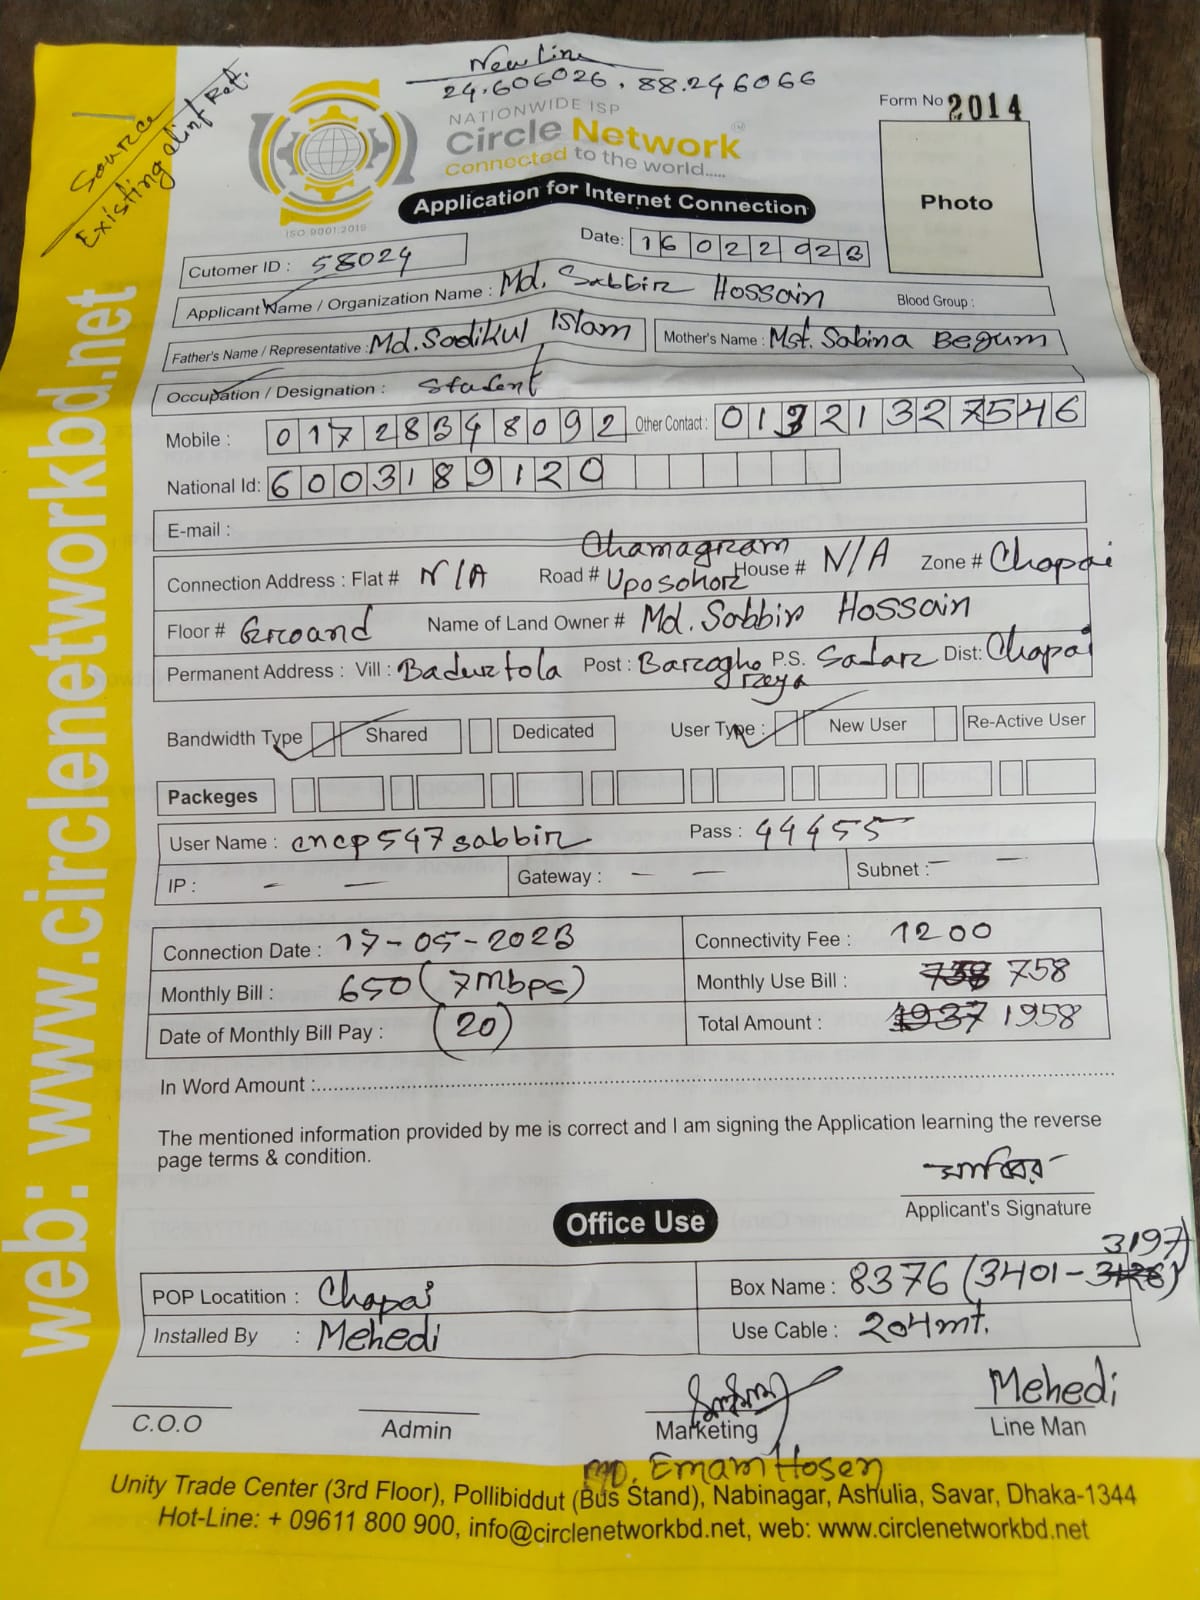 New Line
24.606026, 88.246066
Source
Existing client Ref.
Form No 2014
NATIONWIDE ISP
Circle Network
Connected to the world.....
ISO 9001:2015
Application for Internet Connection
Photo
Date: 16022023
Cutomer ID : 58024
Applicant Name / Organization Name : Md. Sabbir Hossain Blood Group :
Father's Name / Representative : Md. Sadikul Islam Mother's Name : Mst. Sabina Begum
Occupation / Designation : Student
Mobile : 01728348092 Other Contact : 01321327546
National Id: 6003189120
E-mail :
Chamagram
Connection Address : Flat # N/A Road # Uposohor House # N/A Zone # Chapai
Floor # Ground Name of Land Owner # Md. Sabbir Hossain
Permanent Address : Vill : Badurtola Post : Barogho P.S. Sadar Dist: Chapai
reya
Bandwidth Type Shared Dedicated User Type : New User Re-Active User
Packeges
User Name : cncp547sabbir Pass : 44455
IP : - - Gateway : - - Subnet : - -
Connection Date : 17-05-2023 Connectivity Fee : 1200
Monthly Bill : 650 (7Mbps) Monthly Use Bill : 758
Date of Monthly Bill Pay : (20) Total Amount : 1937 1958
In Word Amount :
The mentioned information provided by me is correct and I am signing the Application learning the reverse
page terms & condition.
সাব্বির
Applicant's Signature
Office Use
3197)
POP Locatition : Chapai Box Name : 8376 (3401-
Installed By : Mehedi Use Cable : 204mt.
Mehedi
C.O.O Admin Marketing Line Man
MD. Emam Hosen
Unity Trade Center (3rd Floor), Pollibiddut (Bus Stand), Nabinagar, Ashulia, Savar, Dhaka-1344
Hot-Line: + 09611 800 900, info@circlenetworkbd.net, web: www.circlenetworkbd.net
web: www.circlenetworkbd.net